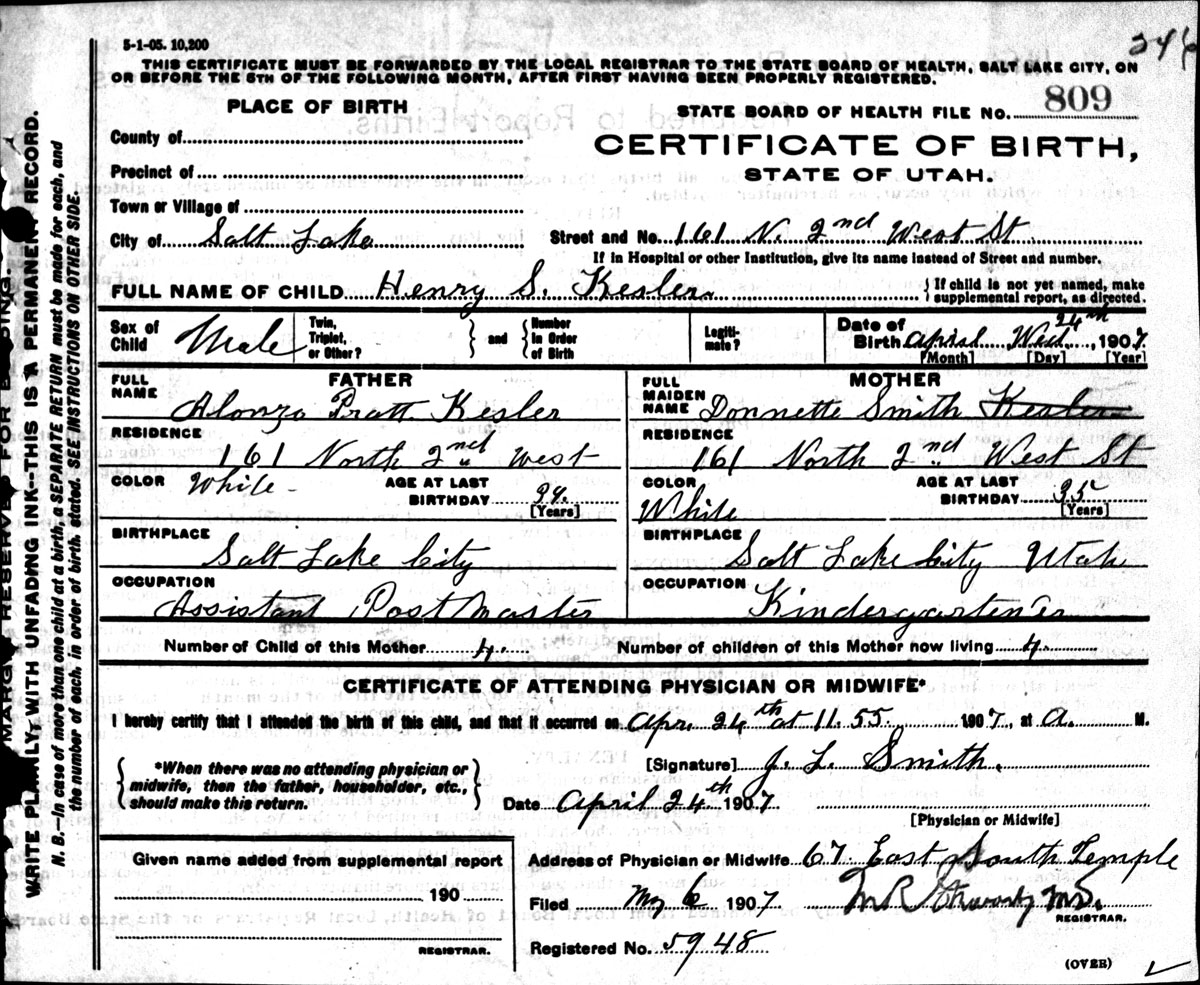 5-1-05. 10,200
246
THIS CERTIFICATE MUST BE FORWARDED BY THE LOCAL REGISTRAR TO THE STATE BOARD OF HEALTH, SALT LAKE CITY, ON
OR BEFORE THE 5TH OF THE FOLLOWING MONTH, AFTER FIRST HAVING BEEN PROPERLY REGISTERED.
PLACE OF BIRTH
County of
Precinct of
Town or Village of
City of Salt Lake
STATE BOARD OF HEALTH FILE NO. 809
CERTIFICATE OF BIRTH,
STATE OF UTAH.
Street and No. 161 N. 2nd West St
If in Hospital or other Institution, give its name instead of Street and number.
FULL NAME OF CHILD Henry S. Kesler
If child is not yet named, make
supplemental report, as directed.
Sex of Child Male
Twin, Triplet, or Other?
and
Number in Order of Birth
Legitimate?
Date of Birth April Wed. 24th 1907
[Month] [Day] [Year]
FATHER
FULL NAME Alonzo Pratt Kesler
RESIDENCE 161 North 2nd West
COLOR White
AGE AT LAST BIRTHDAY 39.
[Years]
BIRTHPLACE Salt Lake City
OCCUPATION Assistant Post Master
MOTHER
FULL MAIDEN NAME Donnette Smith Kesler
RESIDENCE 161 North 2nd West St
COLOR White
AGE AT LAST BIRTHDAY 35
[Years]
BIRTHPLACE Salt Lake City Utah
OCCUPATION Kindergartener
Number of Child of this Mother 4.
Number of children of this Mother now living 4.
CERTIFICATE OF ATTENDING PHYSICIAN OR MIDWIFE*
I hereby certify that I attended the birth of this child, and that it occurred on Apr. 24th at 11.55 1907, at A. M.
*When there was no attending physician or
midwife, then the father, householder, etc.,
should make this return.
[Signature] J. L. Smith.
Date April 24th 1907
[Physician or Midwife]
Given name added from supplemental report
190
REGISTRAR.
Address of Physician or Midwife 67 East South Temple
Filed May 6 1907
M R M.D.
REGISTRAR.
Registered No. 5948
(OVER)
RESERVED FOR BINDING.
WRITE PLAINLY WITH UNFADING INK--THIS IS A PERMANENT RECORD.
N. B.—In case of more than one child at a birth, a SEPARATE RETURN must be made for each, and
the number of each, in order of birth, stated. SEE INSTRUCTIONS ON OTHER SIDE.